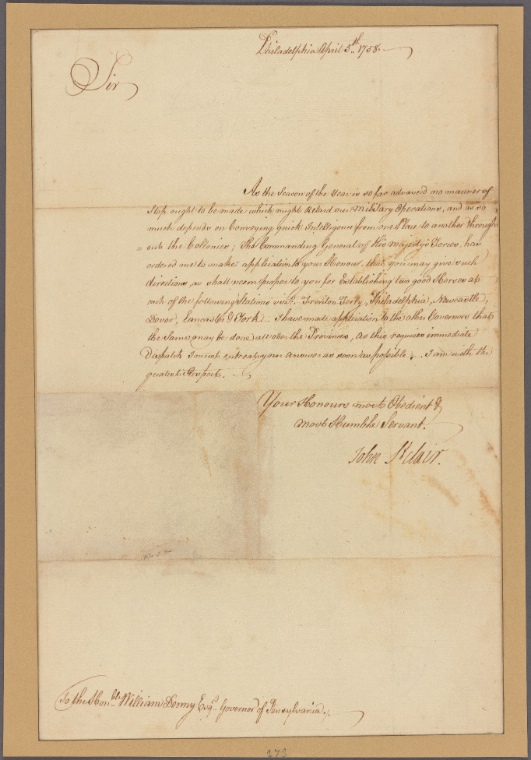 Philadelphia April 5th 1758
Sir
As the Season of the Year is so far advanced no manner of
Stop ought to be made which might Retard our Military Operations, and as so
much depends on Conveying quick Intelligence from one Place to another through
=out the Colonies; The Commanding General off His Majesty's Forces, has
ordered me to make application to your Honour, that you may give such
directions as shall seem proper to you for Establishing two good Horses at
each of the following Stations vizt. Trenton Ferry, Philadelphia, Newcastle,
Dover, Lancastr. & York. I have made application to the other Governours that
the Same may be done all over the Provinces, As this requires immediate
Dispatch I must entreat your Answer as soon as possible; I am with the
greatest Respect.
Your Honours most Obedient &
most Humble Servant.
John St Clair.
To the Honble. William Denny Esqr. Governor of Pensylvania.
273